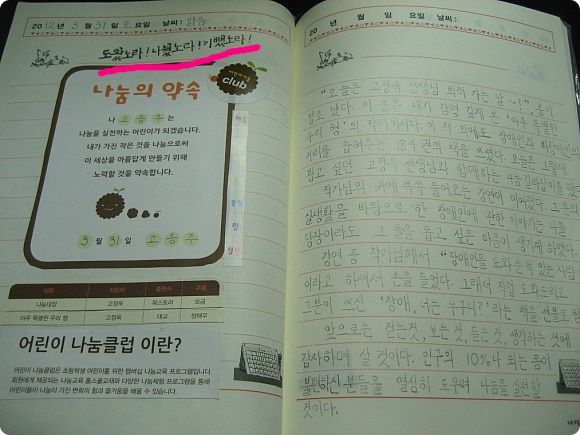 2012년 3월 31일 토요일 날씨: 맑음
도왔노라! 나눴노라! 기뻤노라!
어린이나눔
club
나눔의 약속
나 고승주 는
나눔을 실천하는 어린이가 되겠습니다.
내가 가진 작은 것을 나눔으로써
이 세상을 아름답게 만들기 위해
노력할 것을 약속합니다.
3월 31일 고승주
제목 지은이 출판사 구분
나눔대장 고정욱 북스토리 모금
아주 특별한 우리 형 고정욱 대교 장애우
어린이 나눔클럽 이란?
어린이 나눔클럽은 초등학생 어린이를 위한 멤버십 나눔교육 프로그램입니다.
회원에게 제공되는 나눔교육 홈스쿨교재와 다양한 나눔체험 프로그램을 통해
어린이들이 나눔이 가진 변화의 힘과 즐거움을 배울 수 있습니다.
20 년 월 일 요일 날씨:
"오늘은 고정욱 선생님 뵈러 가는 날~!" 흥이
절로 났다. 이 분은 내가 감명 깊게 본 '아주 특별한
우리 형'의 작가이시다. 이 책 외에도 장애인과 비장애인의
거리를 좁혀주는 184권의 책을 쓰셨다. 오늘은 그렇게
뵙고 싶던 고정욱 선생님과 함께하는 나눔클럽입학식을 했다.
작가님의 귀에 쏙쏙 들어오는 강연이 이어졌다. 그 분의
실생활을 바탕으로 한 장애인에 관한 이야기는 나를
당장이라도 그들을 돕고 싶은 마음이 생기게 하였다.
강연 중 작가님께서 "장애인을 도와준적 있는 사람"
이라고 하셔서 손을 들었다. 그래서 직접 도와드리고
그분이 쓰신 '장애, 너는 누구니?'라는 책을 선물로 받
앞으로는 걷는것, 보는것, 듣는것, 생각하는것에
감사하며 살 것이다. 인구의 10%나 되는 몸이
불편하신분들을 열심히 도우며 나눔을 실천할
것이다.